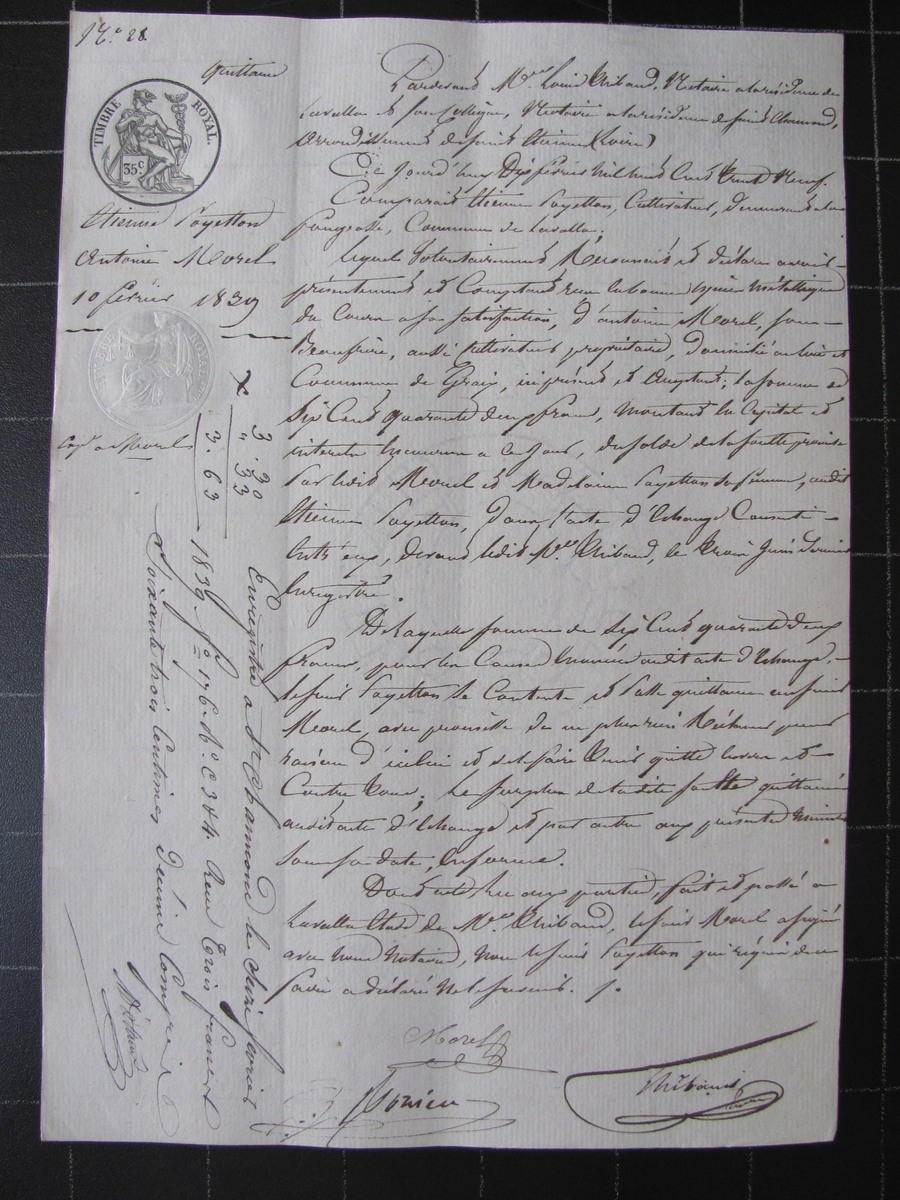 N.° 28
Quittance
TIMBRE ROYAL.
35c
Etienne Payetton
Antoine Morel
10 février 1839
Pardevant M.tre Louis Thibaud, Notaire à la résidence de
Lavalla et son collègue, Notaire à la résidence de saint Chamond,
arrondissement de saint Etienne (Loire)
Ce Jourd'hui Dix février Mil huit Cent Trente Neuf.
Comparait Etienne Payetton, Cultivateur, demeurant à la
Fougeasse, Commune de Lavalla.
Lequel Volontairement Reconnait et déclare avoir
présentement et Comptant reçu en bonnes espèces Métalliques
du Cours à sa satisfaction, d'antoine Morel, son
Beaufrère, aussi Cultivateur propriétaire, domicilié au lieu et
Commune de Graix, ici présent et acceptant; la somme de
Six Cent quarante deux francs, montant en Capital et
intérêts encourus à ce Jour, du solde de la soulte promise
Par ledit Morel et Madelaine Payetton sa femme, audit
Etienne Payetton, dans l'acte d'Echange Consenti
Entr'eux, devant ledit M.tre Thibaud, le Trois Juin Dernier
Enregistré.
De laquelle somme de Six Cent quarante deux
francs, pour les Causes énoncées audit acte d'Echange,
le sieur Payetton se Contente et Passe quittance au sieur
Morel, avec promesse de ne plus rien Réclamer pour
raison d'icelui et de le faire Tenir quitte envers et
Contre Tous; Le surplus de la dite soulte quittancé
audit acte d'Echange et par autre aux présentes Minutes
sous sa date, En forme.
Dont acte, lu aux parties, fait et passé à
Lavalla Etude de M.tre Thibaud, le sieur Morel a signé
avec Nous Notaires, Non le sieur Payetton qui requis de ce
faire a déclaré Ne le savoir.
Morel
Thibaud
Cop. à Morel
3. 30
" 33
3. 63
Enregistré à St Chamond le onze février
1839 f° 176 R° C 3 & 4. Reçu Trois francs
Soixante trois Centimes Décime Compris